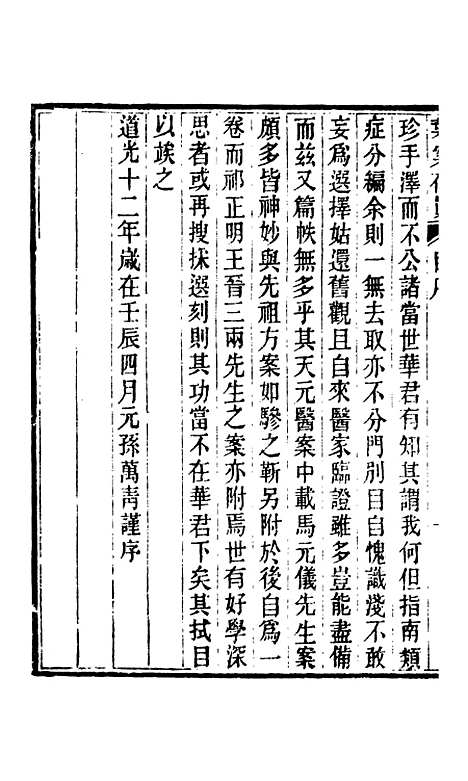 珍手澤而不公諸當世華君有知其謂我何但指南類
症分編余則一無去取亦不分門別目自愧識淺不敢
妄爲選擇姑還舊觀且自來醫家臨證雖多豈能盡備
而茲又篇帙無多乎其天元醫案中載馬元儀先生案
頗多皆神妙與先祖方案如驂之靳另附於後自爲一
卷而祁正明王晉三兩先生之案亦附焉世有好學深
思者或再搜採選刻則其功當不在華君下矣其拭目
以竢之
道光十二年歲在壬辰四月元孫萬青謹序